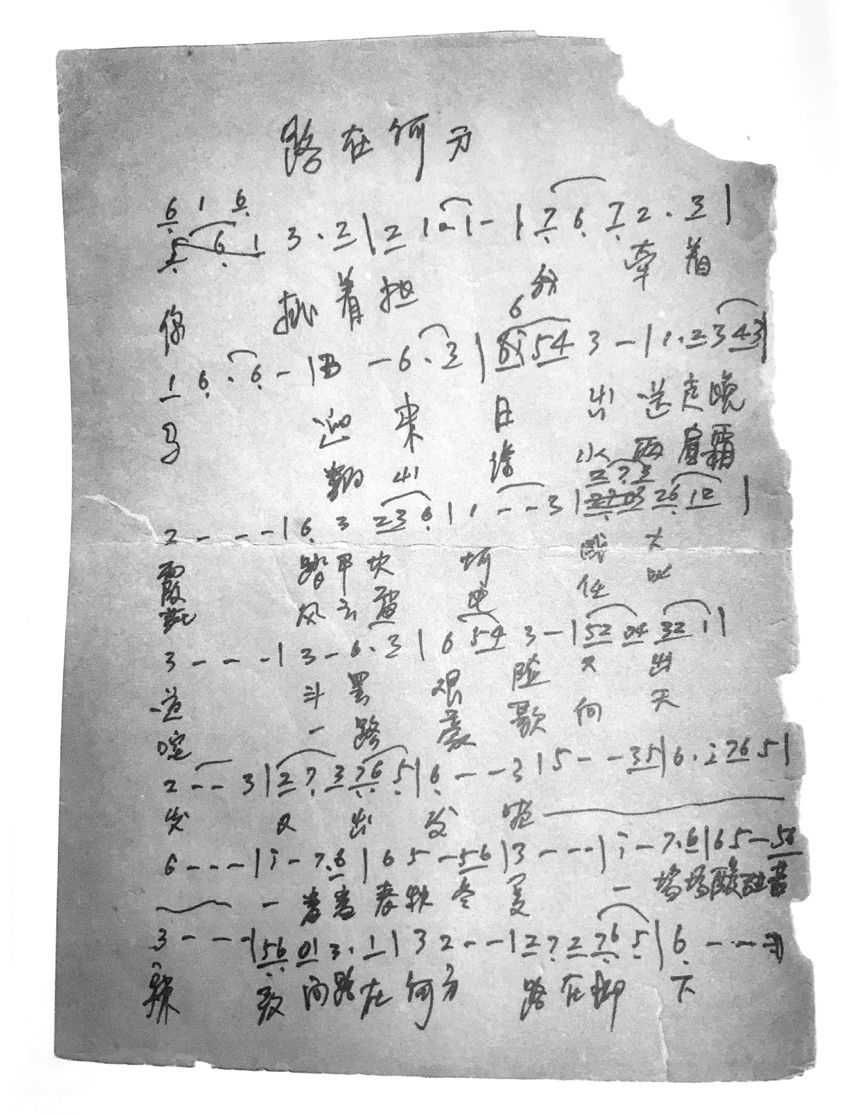 路在何方
6 1 6
5 6 1 3 · 2 | 2 1 · 1 - | 7 6 7 2 · 3 |
你 挑着担 我 牵着
6
1 6 · 6 - | 3 - 6 · 3 | 6 i 5 4 3 - | 1 · 2 3 4 3 |
马 迎来日出 送走晚
翻山涉水 两肩霜
2 7 2
2 - - - | 6 3 2 3 6 | 1 - - 3 | 2 6 1 2 |
霞 踏平坎坷 成大
风云雷电 任
3 - - - | 3 - 6 · 3 | 6 5 4 3 - | 5 2 0 4 3 2 1 |
道 斗罢艰险 又出
一路豪歌 向天
2 - - 3 | 2 7 3 7 6 5 | 6 - - - 3 | 5 - - 3 5 | 6 · i 7 6 5 |
发 又出发 啦
6 - - - | i - 7 · 6 | 6 5 - 5 6 | 3 - - - | i - 7 · 6 | 6 5 - 5 6
一 春秋冬夏 一 场场酸甜苦
3 - - - | 5 6 0 1 3 · 1 | 3 2 - - | 2 7 2 7 6 5 | 6 - - -
辣 敢问路在何方 路在脚下